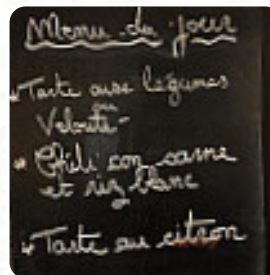 Menu du jour
* Tarte aux légumes
ou
Velouté -
* Chili con carne
et riz blanc
* Tarte au citron